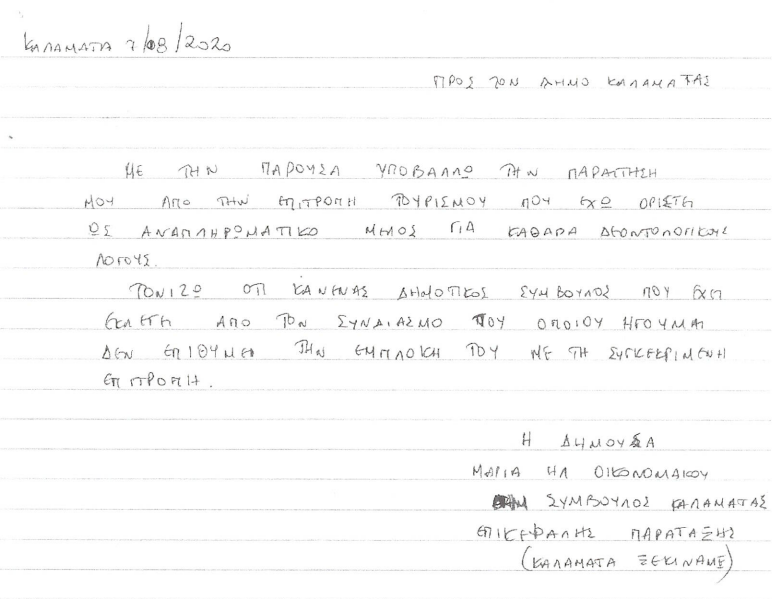 ΚΑΛΑΜΑΤΑ 7/08/2020
ΠΡΟΣ ΤΟΝ ΔΗΜΟ ΚΑΛΑΜΑΤΑΣ
ΜΕ ΤΗΝ ΠΑΡΟΥΣΑ ΥΠΟΒΑΛΛΩ ΤΗΝ ΠΑΡΑΙΤΗΣΗ
ΜΟΥ ΑΠΟ ΤΗΝ ΕΠΙΤΡΟΠΗ ΤΟΥΡΙΣΜΟΥ ΠΟΥ ΕΧΩ ΟΡΙΣΤΕΙ
ΩΣ ΑΝΑΠΛΗΡΩΜΑΤΙΚΟ ΜΕΛΟΣ ΓΙΑ ΚΑΘΑΡΑ ΔΕΟΝΤΟΛΟΓΙΚΟΥΣ
ΛΟΓΟΥΣ.
ΤΟΝΙΖΩ ΟΤΙ ΚΑΝΕΝΑΣ ΔΗΜΟΤΙΚΟΣ ΣΥΜΒΟΥΛΟΣ ΠΟΥ ΕΧΕΙ
ΕΚΛΕΓΕΙ ΑΠΟ ΤΟΝ ΣΥΝΔΙΑΣΜΟ ΤΟΥ ΟΠΟΙΟΥ ΗΓΟΥΜΑΙ
ΔΕΝ ΕΠΙΘΥΜΕΙ ΤΗΝ ΕΜΠΛΟΚΗ ΤΟΥ ΜΕ ΤΗ ΣΥΓΚΕΚΡΙΜΕΝΗ
ΕΠΙΤΡΟΠΗ.
Η ΔΗΛΟΥΣΑ
ΜΑΡΙΑ ΗΛ ΟΙΚΟΝΟΜΑΚΟΥ
ΣΥΜΒΟΥΛΟΣ ΚΑΛΑΜΑΤΑΣ
ΕΠΙΚΕΦΑΛΗΣ ΠΑΡΑΤΑΞΗΣ
(ΚΑΛΑΜΑΤΑ ΞΕΚΙΝΑΜΕ)